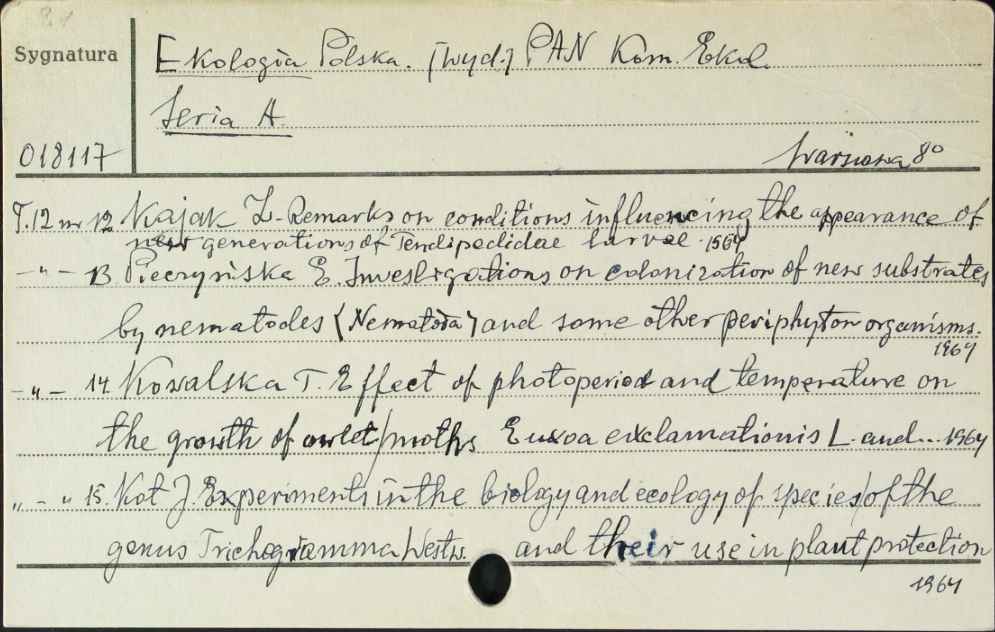 Sygnatura
Ekologia Polska. [Wyd.] PAN Kom. Ekol.
Seria A.
018117
Warszawa 8°
T.12 nr 12 Kajak Z. - Remarks on conditions influencing the appearance of
new generations of Tendipedidae larvae 1964
-"- 13. Pieczyńska E. Investigations on colonization of new substrates
by nematodes (Nematoda) and some other periphyton organisms.
1964
-"- 14. Kowalska T. Effect of photoperiod and temperature on
the growth of owlet/moths Euxoa exclamationis L. and... 1964
"-" 15. Kot J. Experiments in the biology and ecology of species/of the
genus Trichogramma Westw. and their use in plant protection
1964